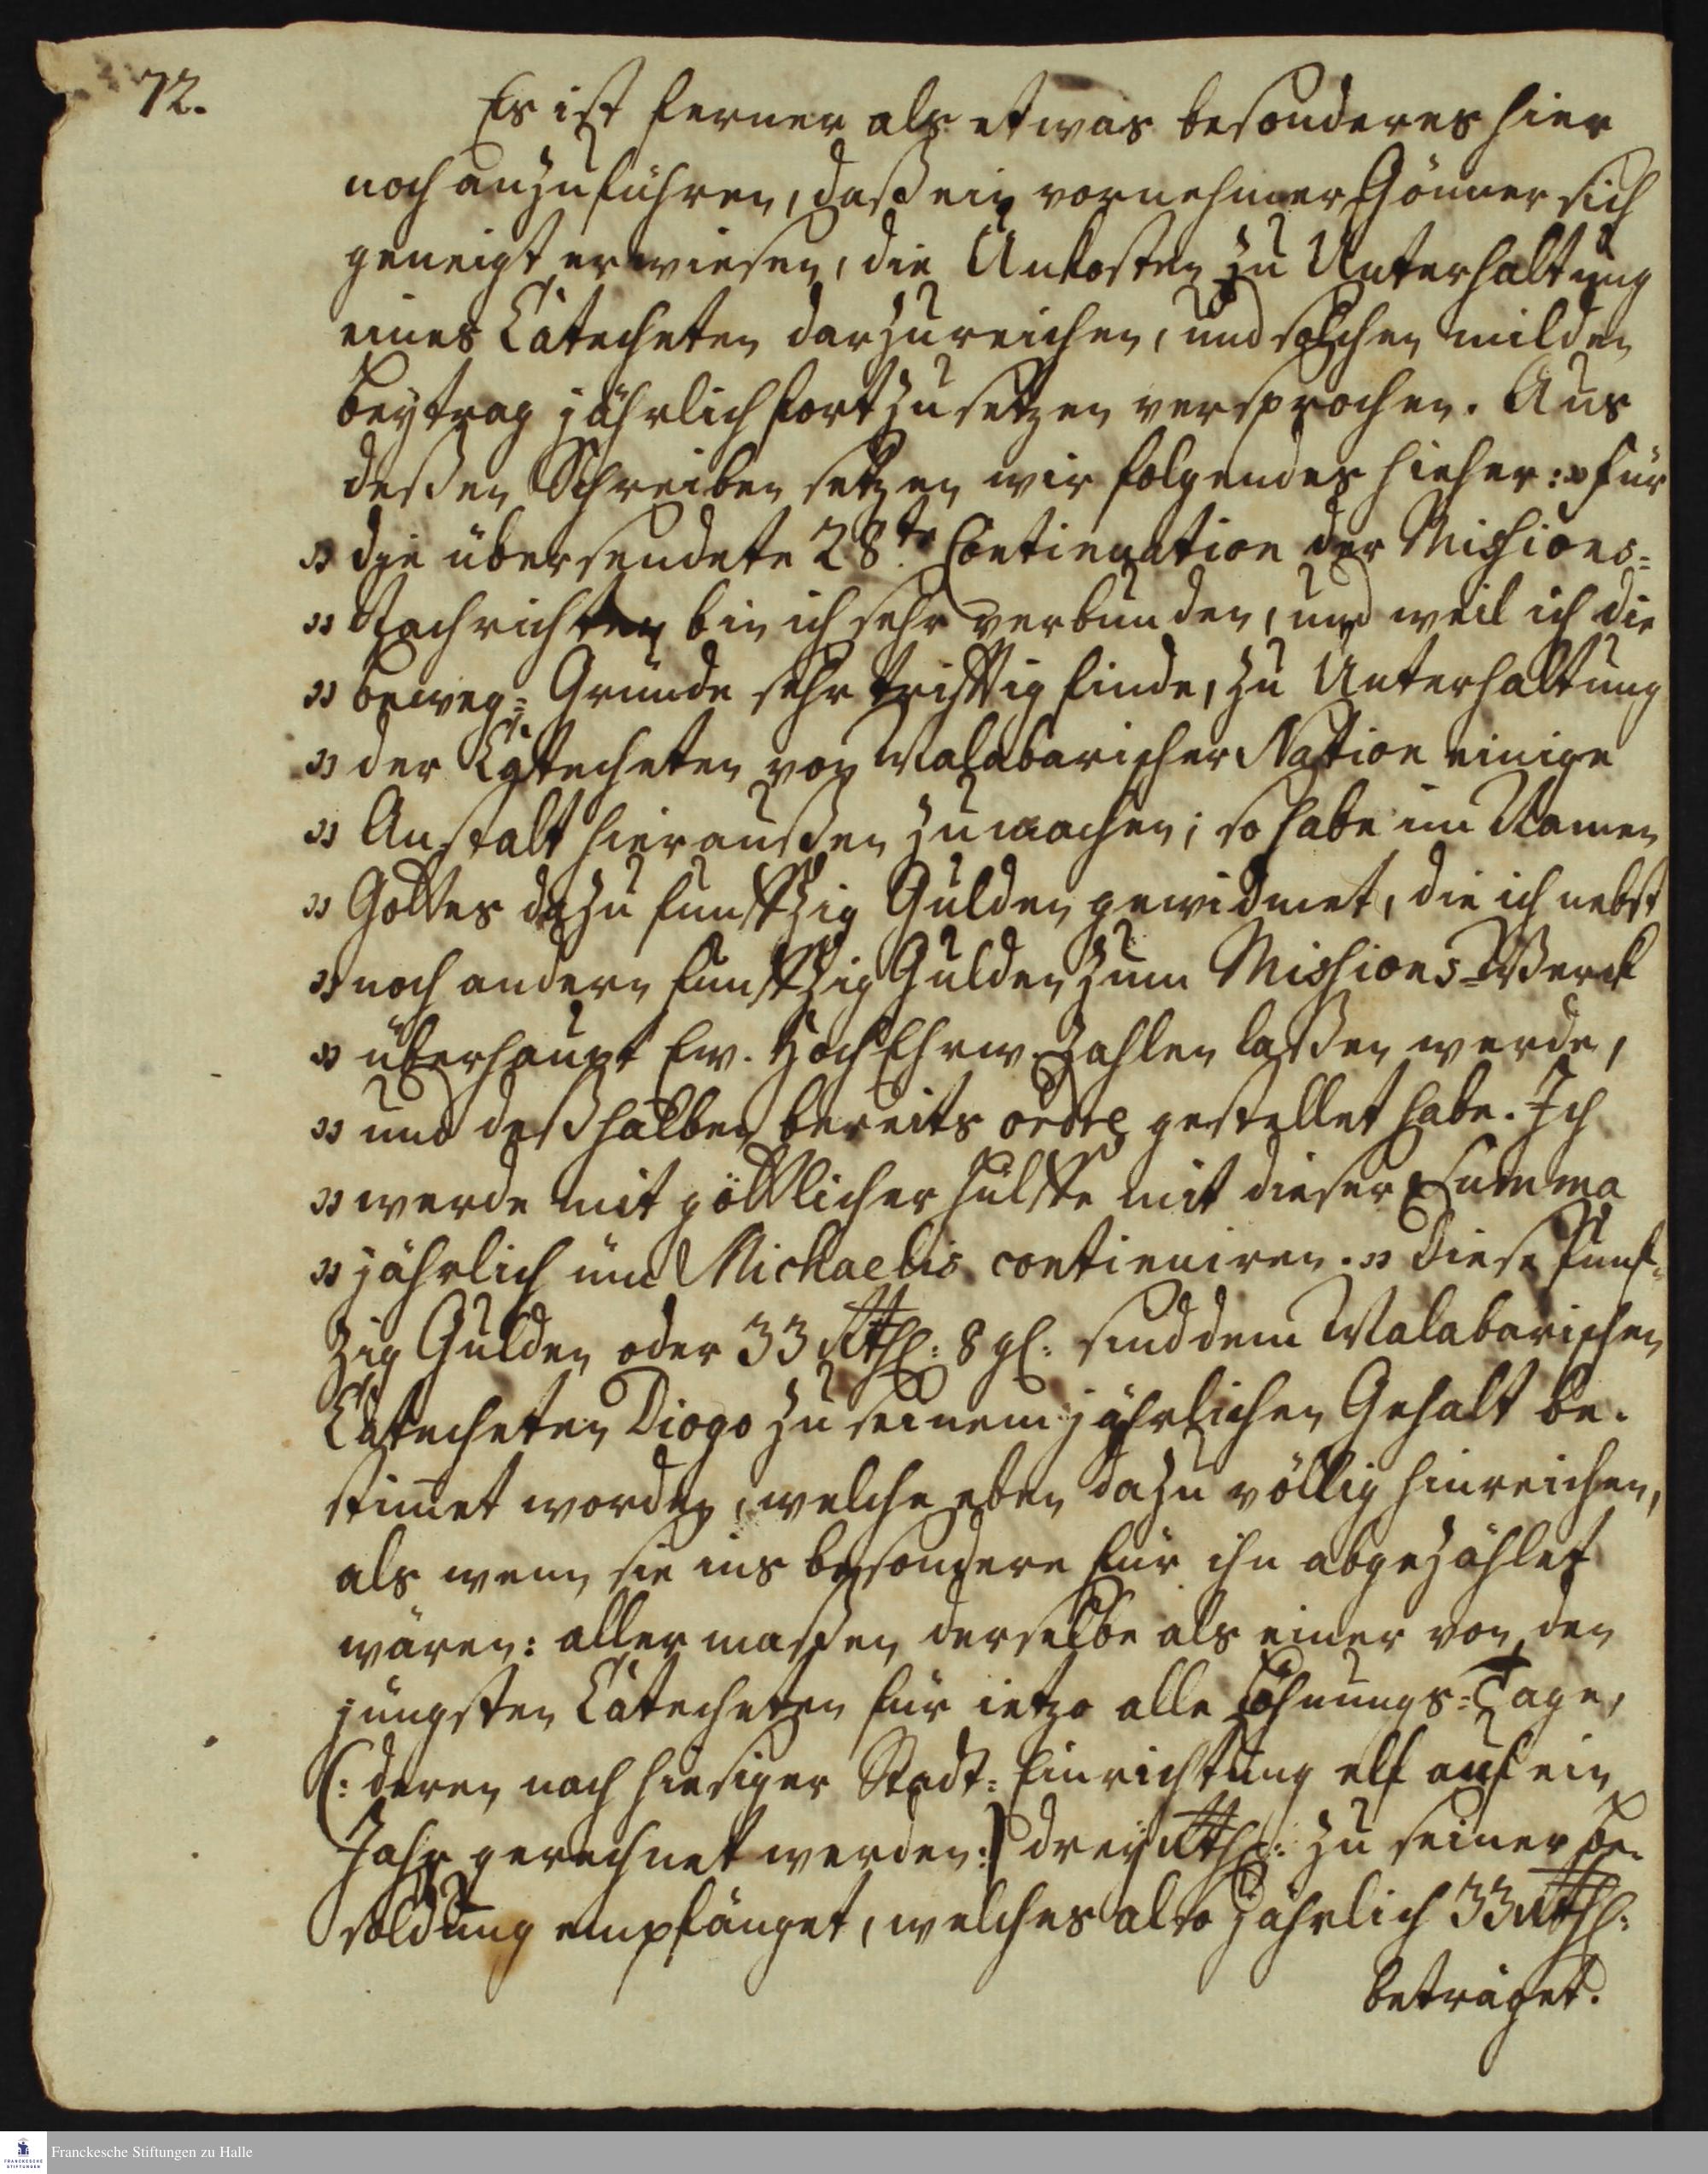 72.
Es ist ferner als etwas besonderes hier
noch anzuführen, daß ein vornehmer Gönner sich
geneigt erwiesen, die Unkosten zu Unterhaltung
eines Catecheten darzureichen, und solchen milden
Beytrag jährlich fortzusetzen versprochen. Aus
deßen Schreiben setzen wir folgendes hieher: „Für
„ die übersendete 28te Continuation der Missions=
„ Nachrichten bin ich sehr verbunden, und weil ich die
„ Beweg=Gründe sehr trifftig finde, zu Unterhaltung
„ der Catecheten von Malabarischer Nation einige
„ Anstalt hieraußen zu machen; so habe im Namen
„ Gottes dazu funffzig Gulden gewidmet, die ich nebst
„ noch andern funffzig Gulden zum Missions=Werck
„ überhaupt Ew. HochEhrw. zahlen laßen werde,
„ und deßhalben bereits ordre gestellet habe. Ich
„ werde mit göttlicher Hülffe mit dieser Summa
„ jährlich um Michaelis continuiren. „ Diese funf=
zig Gulden oder 33 Rthl: 8 gl: sind dem Malabarischen
Catecheten Diogo zu seinem jährlichen Gehalt be=
stim̄et worden, welche eben dazu völlig hinreichen,
als wenn sie ins besondere für ihn abgezählet
wären: aller maßen derselbe als einer von den
jüngsten Catecheten für ietzo alle Löhnungs=Tage,
(: deren nach hiesiger Stadt=Einrichtung elf auf ein
Jahr gerechnet werden:) drey Rthl: zu seiner Be=
soldung empfänget, welches also jährlich 33 Rthl:
beträget.
Franckesche Stiftungen zu Halle
FRANCKESCHE
STIFTUNGEN